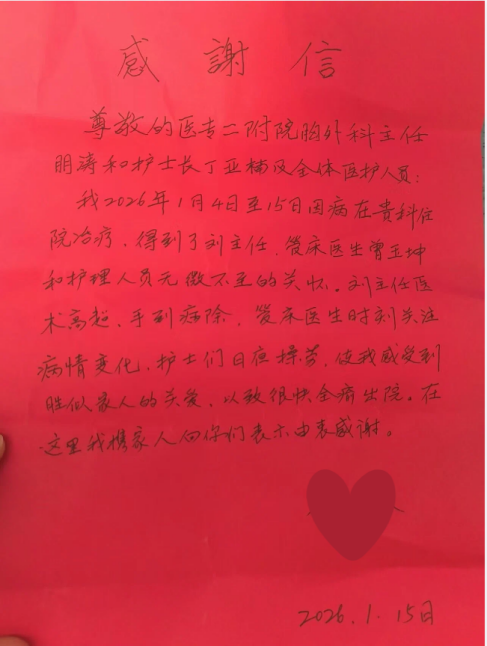 感謝信
尊敬的医专二附院胸外科主任
明涛和护士长丁亚楠及全体医护人员：
我2026年1月4日至15日因病在贵科住
院治疗，得到了刘主任、管床医生曾玉坤
和护理人员无微不至的关怀。刘主任医
术高超，手到病除，管床医生时刻关注
病情变化，护士们日夜操劳，使我感受到
胜似家人的关爱，以致很快全痛出院。在
这里我携家人向你们表示由表感谢。
2026.1.15日